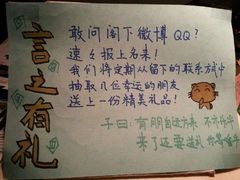 言之有礼
敢问阁下微博QQ?
速々报上名来!
我们将定期从留下的联系方式中
抽取几位幸运的朋友
送上一份精美礼品!
子曰:有朋自远方来 不亦乐乎
来了还要送礼